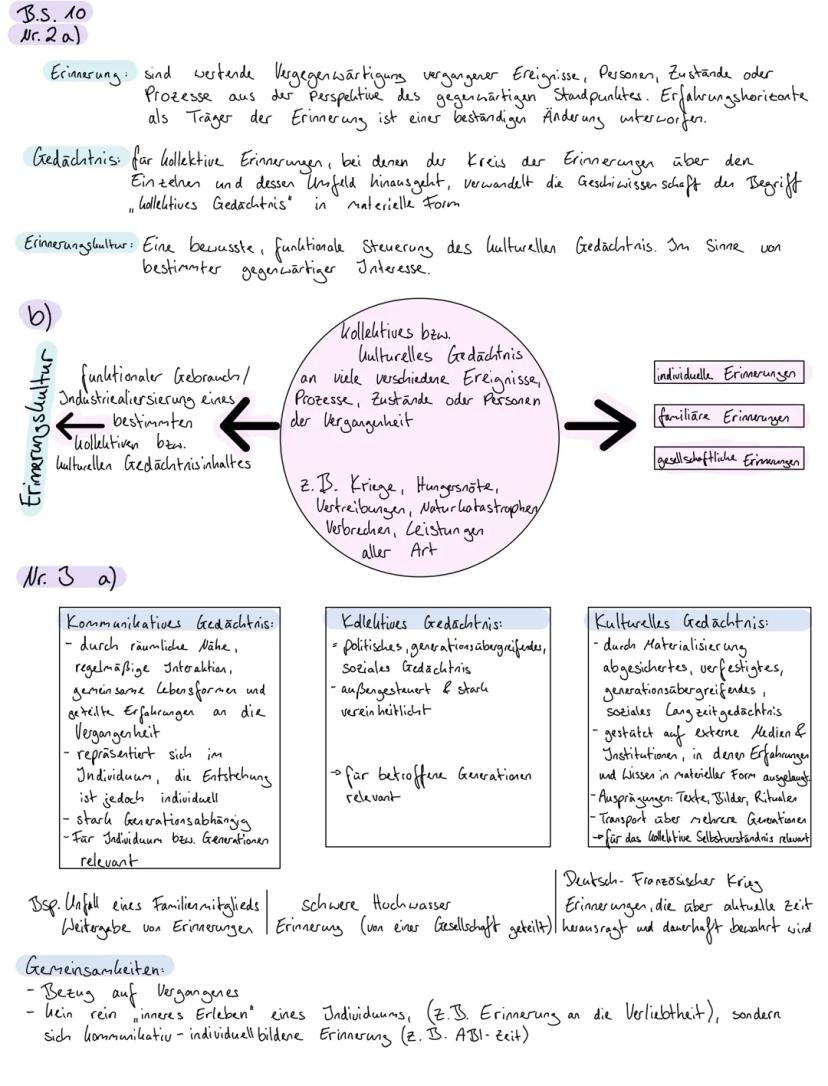 B.S. 10
Nr. 2 a)
Erinnerung: sind wertende Vergegenwärtigung vergangener Ereignisse, Personen, Zustände oder
Prozesse aus der Perspektive des gegenwärtigen Standpunktes. Erfahrungshorizonte
als Träger der Erinnerung ist einer beständigen Änderung unterworfen.
Gedächtnis: für kollektive Erinnerungen, bei denen der Kreis der Erinnerungen über den
Einzelnen und dessen Umfeld hinausgeht, verwandelt die Geschiwissenschaft den Begriff
"kollektives Gedächtnis" in materielle Form
Erinnerungskultur: Eine bewusste, funktionale Steuerung des kulturellen Gedächtnis. Im Sinne von
bestimmter gegenwärtiger Interesse.
b)
Erinnerungskultur
funktionaler Gebrauch/
Industriealiersierung eines
bestimmten
kollektiven bzw.
kulturellen Gedächtnisinhaltes
kollektives bzw.
kulturelles Gedächtnis
an viele verschiedene Ereignisse,
Prozesse, Zustände oder Personen
der Vergangenheit
z.B. Kriege, Hungersnöte,
Vertreibungen, Naturkatastrophen
Verbrechen, Leistungen
aller Art
individuelle Erinnerungen
familiäre Erinnerungen
gesellschaftliche Erinnerungen
Nr. 3 a)
Kommunikatives Gedächtnis:
- durch räumliche Nähe,
regelmäßige Interaktion,
gemeinsame Lebensformen und
geteilte Erfahrungen an die
Vergangenheit
- repräsentiert sich im
Individuum, die Entstehung
ist jedoch individuell
- stark Generationsabhängig
- Für Individuum bzw. Generationen
relevant
Kollektives Gedächtnis:
= politisches, generationsübergreifendes,
soziales Gedächtnis
- außengesteuert & stark
vereinheitlicht
→ für betroffene Generationen
relevant
Kulturelles Gedächtnis:
- durch Materialisierung
abgesichertes, verfestigtes,
generationsübergreifendes,
soziales Langzeitgedächtnis
- gestützt auf externe Medien &
Institutionen, in denen Erfahrungen
und Wissen in materieller Form ausgelaugt
- Ausprägungen: Texte, Bilder, Rituale
- Transport über mehrere Generationen
→ für das kollektive Selbstverständnis relevant
Bsp. Unfall eines Familienmitglieds
Weitergabe von Erinnerungen
schwere Hochwasser
Erinnerung (von einer Gesellschaft geteilt)
Deutsch-Französischer Krieg
Erinnerungen, die über aktuelle Zeit
herausragt und dauerhaft bewahrt wird
Gemeinsamkeiten:
- Bezug auf Vergangenes
- kein rein "inneres Erleben" eines Individuums, (z.B. Erinnerung an die Verliebtheit), sondern
sich kommunikativ-individuell bildene Erinnerung (z.B. ABI-Zeit)